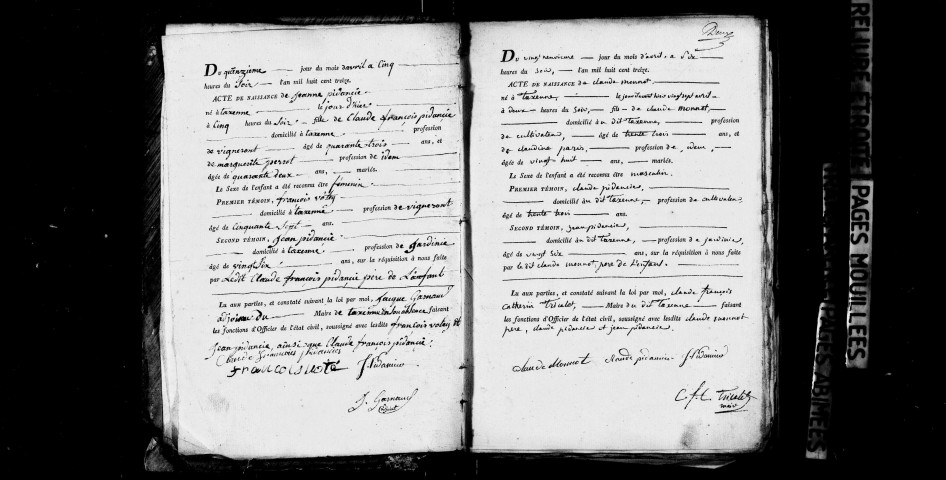 Du quinzième jour du mois davril a Cinq
heures du Soir l'an mil huit cent treize.
ACTE DE NAISSANCE de jeanne pidancie
né à taxenne le jour d'hier
à Cinq heures du Soir fille de Claude françois pidancie
domicilié à taxenne profession
de vigneront âgé de quarante trois ans, et
de marguerite perrot profession de idem
âgée de quarante deux ans, mariés.
Le Sexe de l'enfant a été reconnu être féminin
PREMIER TÉMOIN, françois
domicilié à taxenne profession de vigneront
âgé de cinquante Sept ans.
SECOND TÉMOIN, Jean pidancie
domicilié à taxenne profession de Jardinie
âgé de vingt Six ans, sur la réquisition à nous faite
par Ledit Claude françois pidancie père de L'enfant
Lu aux parties, et constaté suivant la loi par moi, Jacque Garnaud
adjoint du Maire de taxenne faisant
les fonctions d'Officier de l'état civil, soussigné avec lesdits françois et
Jean pidancie, ainsi que Claude françois pidancie
Claude françois pidancie
J. pidancie
J. Garnaud
adjoint
Deux
Du vingt neuvième jour du mois d'avril, a Six
heures du Soir, l'an mil huit cent treize.
ACTE DE NAISSANCE de claude monnot
né à taxenne, le vingt avril
à deux heures du Soir, fils de claude monnot,
domicilié à u dit taxenne, profession
de cultivateur, âgé de trente trois ans, et
de claudine paris, profession de, idem,
âgée de vingt huit ans, mariés.
Le Sexe de l'enfant a été reconnu être masculin.
PREMIER TÉMOIN, claude pidancie,
domicilié àu dit taxenne, profession de cultivateur
âgé de trente trois ans.
SECOND TÉMOIN, jean pidancie,
domicilié àu dit taxenne, profession de jardinier,
âgé de vingt Six ans, sur la réquisition à nous faite
par le dit claude monnot pere de L'enfant.
Lu aux parties, et constaté suivant la loi par moi, claude françois
Catherin Tricalet, Maire du dit taxenne faisant
les fonctions d'Officier de l'état civil, soussigné avec lesdits claude monnot
pere, claude pidancie et jean pidancie.
Claude Monnot Claude pidancie J. pidancie
C. f. C. Tricalet
maire
RELIURE ETROITE
PAGES MOUILLEES
PAGES ABIMEES